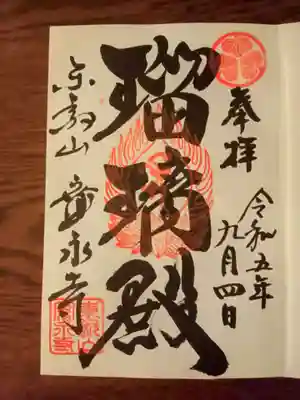 奉拝
令和五年
九月四日
瑠璃殿
東叡山 寛永寺